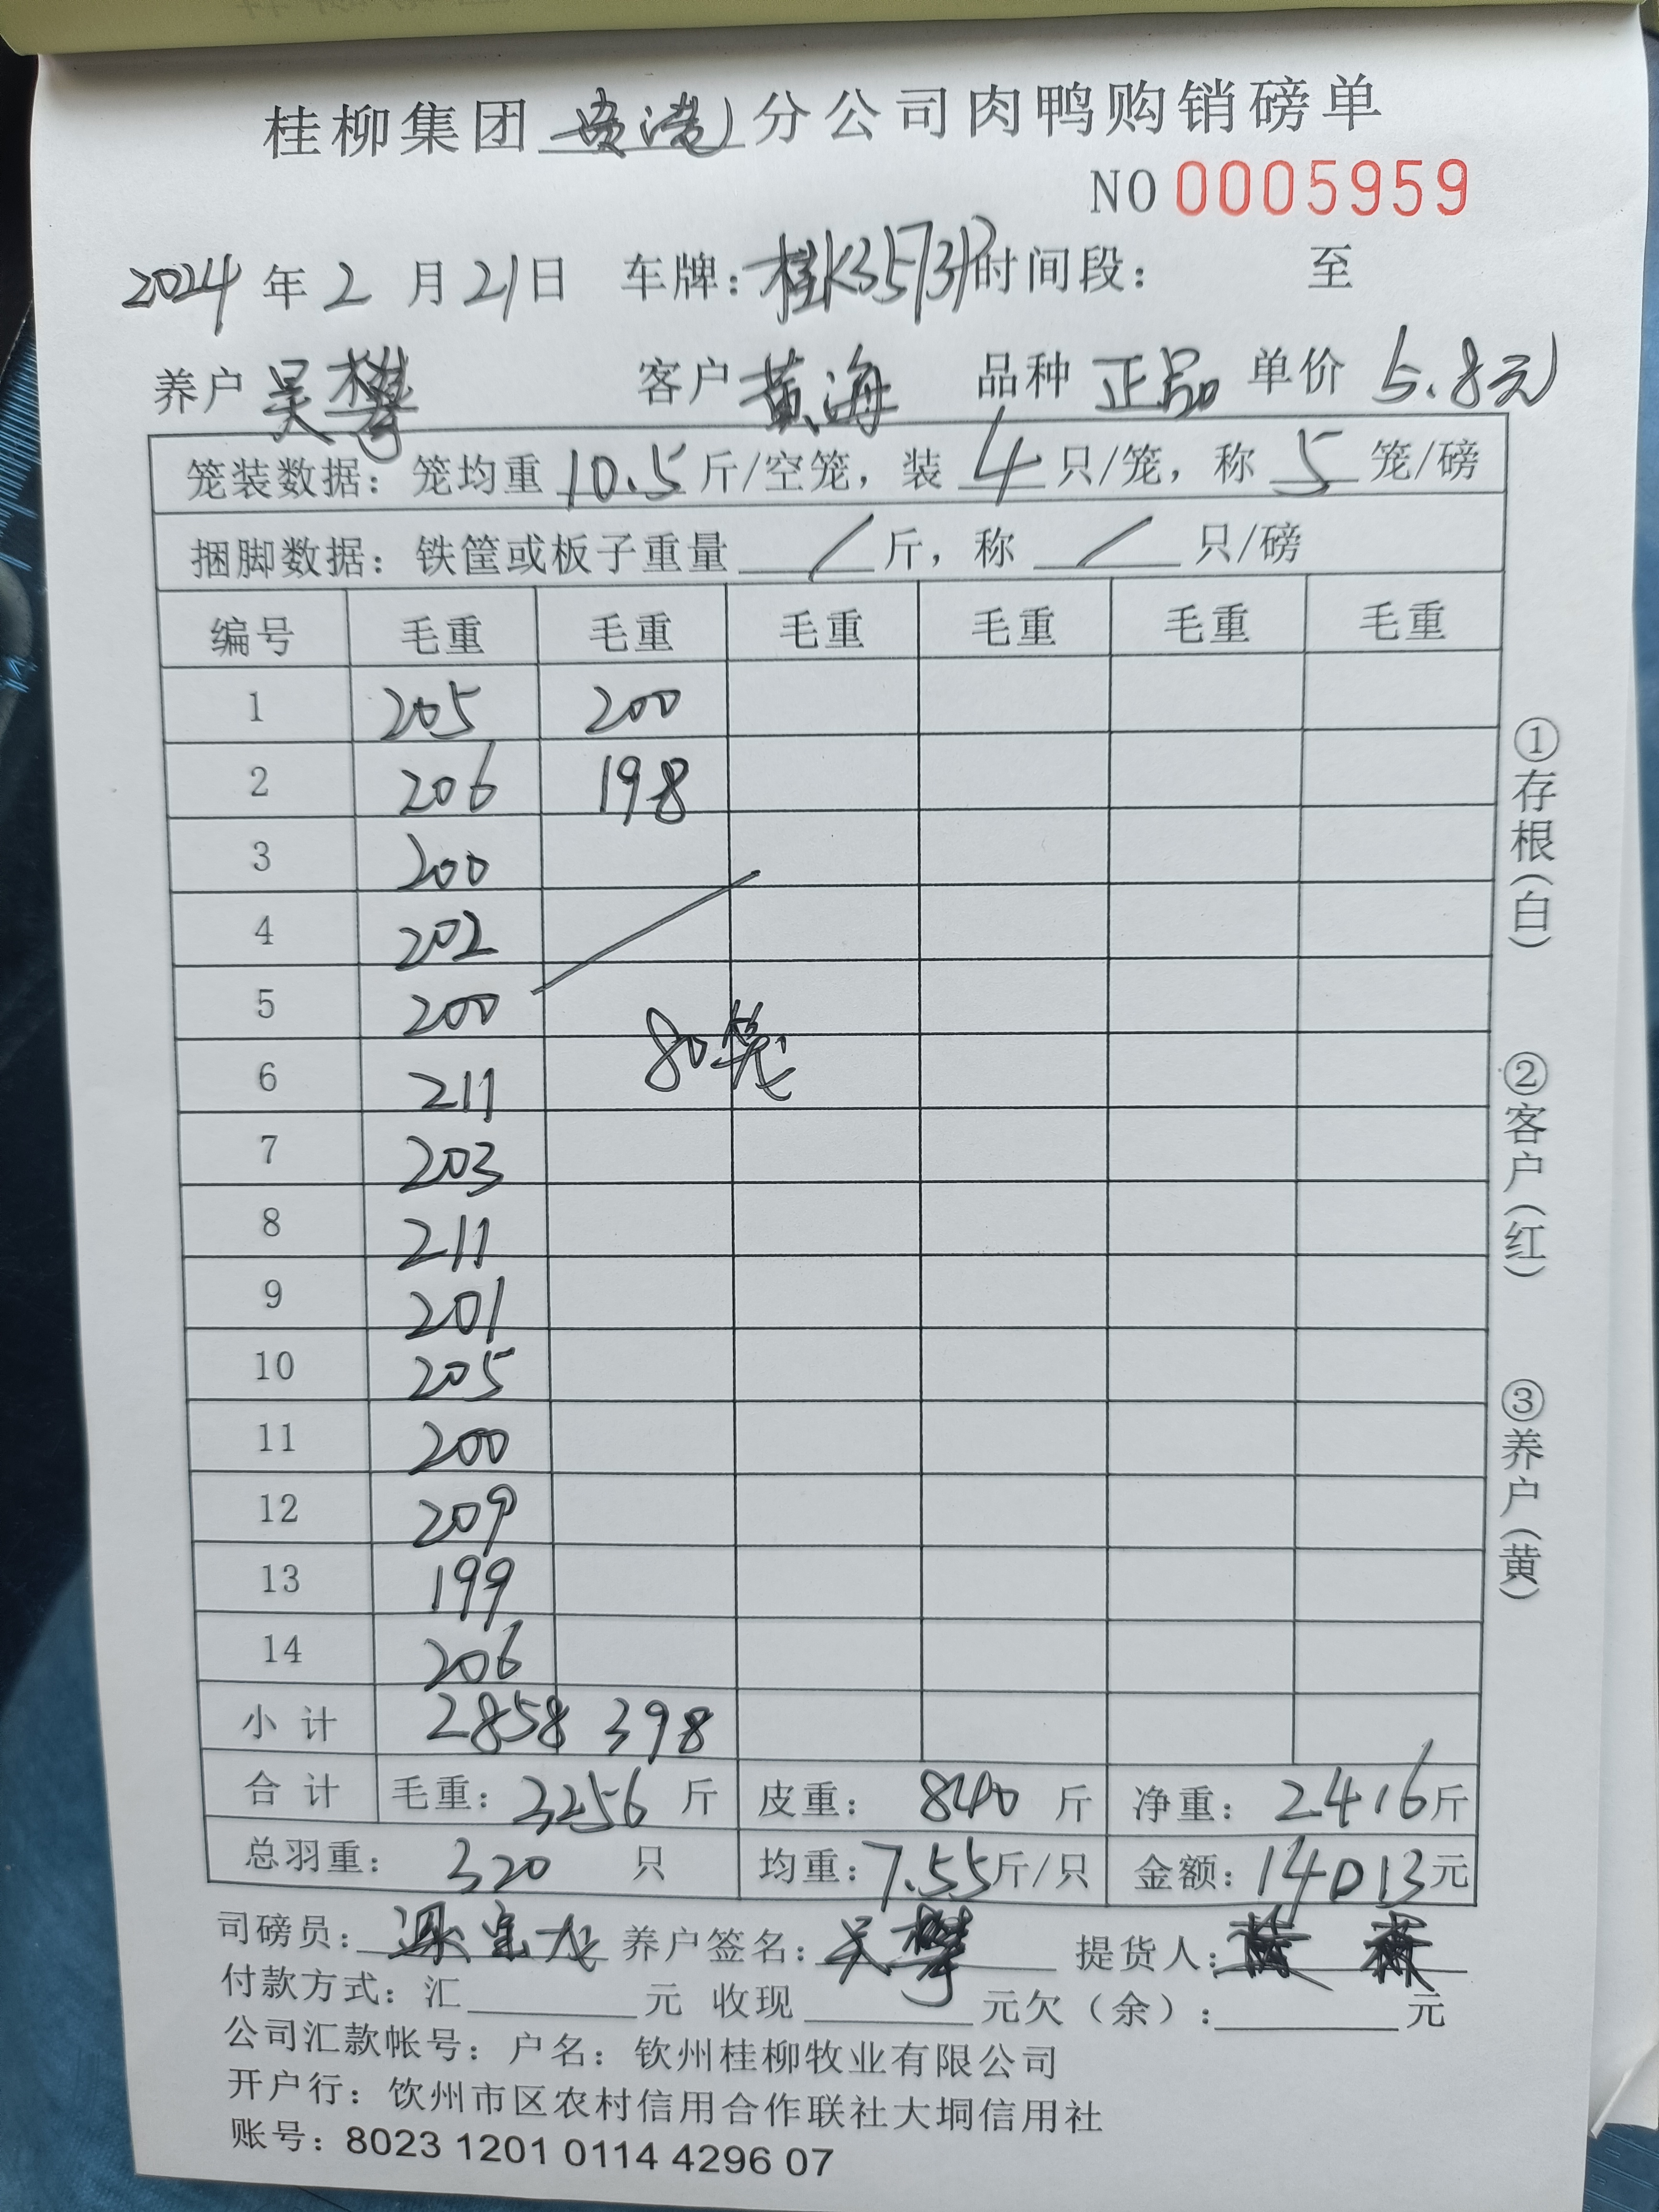 桂柳集团贵港分公司肉鸭购销磅单
NO 0005959
2024年2月21日 车牌：桂K35737 时间段： 至
养户 吴攀 客户 黄海 品种 正品 单价 5.8元
笼装数据：笼均重 10.5 斤/空笼，装 4 只/笼，称 5 笼/磅
捆脚数据：铁筐或板子重量 / 斤，称 / 只/磅
编号 毛重 毛重 毛重 毛重 毛重 毛重
1 205 200
2 206 198
3 200
4 202
5 200
80笼
6 211
7 203
8 211
9 201
10 205
11 200
12 209
13 199
14 206
小计 2858 398
合计 毛重：3256 斤 皮重：840 斤 净重：2416斤
总羽重：320 只 均重：7.55斤/只 金额：14013元
司磅员： 养户签名：吴攀 提货人：
付款方式：汇 元 收现 元欠（余）： 元
公司汇款帐号：户名：钦州桂柳牧业有限公司
开户行：饮州市区农村信用合作联社大垌信用社
账号：8023 1201 0114 4296 07
①存根（白）
②客户（红）
③养户（黄）